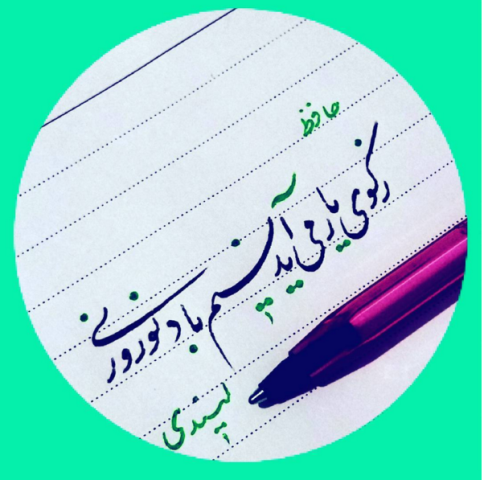 حافظ
ز کوی یار می آید نسیم باد نوروزی